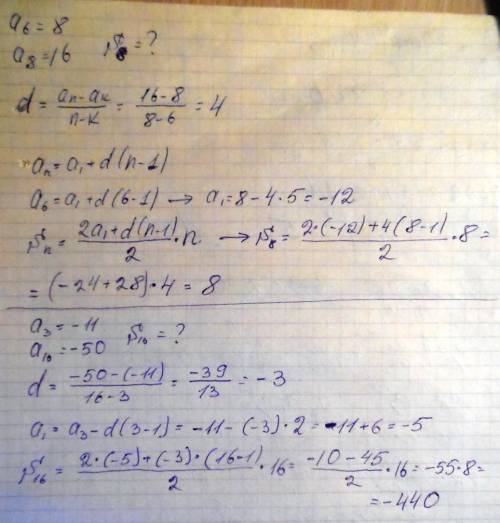 a₆=8
a₈=16 S₈=?
d = (aₙ-aₖ)/(n-k) = (16-8)/(8-6) = 4
aₙ=a₁+d(n-1)
a₆=a₁+d(6-1) → a₁=8-4·5=-12
Sₙ = (2a₁+d(n-1))/2 · n → S₈ = (2·(-12)+4(8-1))/2 · 8 =
= (-24+28)·4 = 8
a₃=-11
a₁₆=-50 S₁₆=?
d = (-50-(-11))/(16-3) = (-39)/13 = -3
a₁ = a₃-d(3-1) = -11-(-3)·2 = -11+6 = -5
S₁₆ = (2·(-5)+(-3)·(16-1))/2 · 16 = (-10-45)/2 · 16 = -55·8 =
= -440